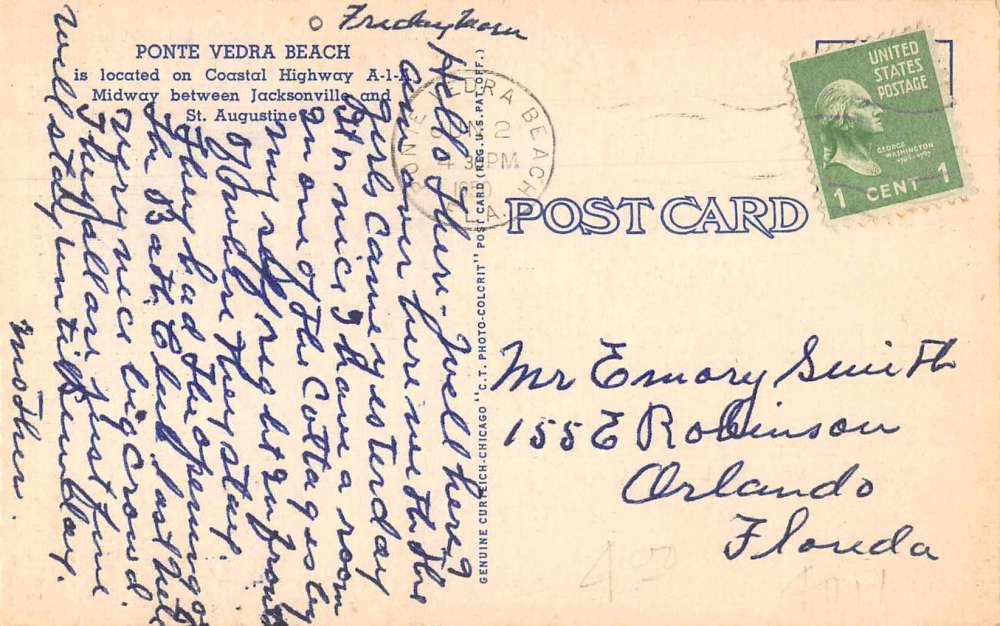 Friday Morn
PONTE VEDRA BEACH
is located on Coastal Highway A-1-A
Midway between Jacksonville and
St. Augustine
Hello there - Well here I
am over here with the
girls Came yesterday
It's nice I have a room
in one of the Cottages by
my self, right in front
of where they stay.
They had the opening of
the Bath Club last nite
very nice big Crowd
They all are just fine
Will stay until Sunday.
Mother.
GENUINE CURTEICH-CHICAGO "C.T. PHOTO-COLORIT" POST CARD (REG. U.S. PAT. OFF.)
PONTE VEDRA BEACH
JUN 2
4 30 PM
1950
FLA.
UNITED
STATES
POSTAGE
GEORGE
WASHINGTON
1 CENT 1
POST CARD
Mr Emory Smith
155 E Robinson
Orlando
Florida
4.00